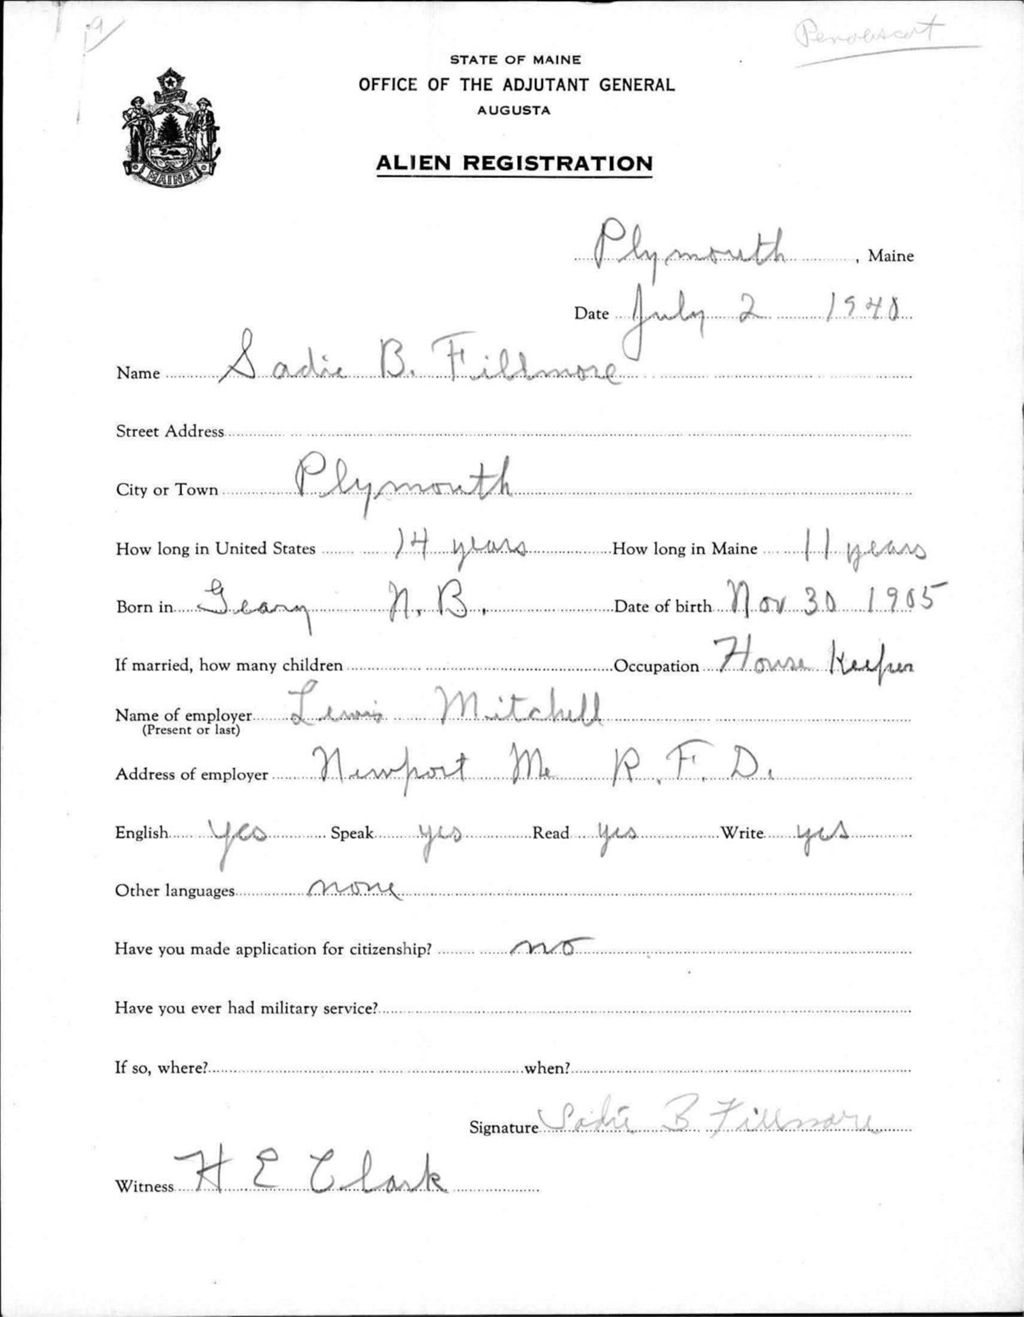 Penobscot
STATE OF MAINE
OFFICE OF THE ADJUTANT GENERAL
AUGUSTA
MAINE
ALIEN REGISTRATION
Plymouth, Maine
Date July 2 1940
Name Sadie B. Fillmore
Street Address
City or Town Plymouth
How long in United States 14 years How long in Maine 11 years
Born in Geary N.B. Date of birth Nov 30 1905
If married, how many children Occupation House Keeper
Name of employer Lewis Mitchell
(Present or last)
Address of employer Newport Me R.F.D.
English yes Speak yes Read yes Write yes
Other languages none
Have you made application for citizenship? no
Have you ever had military service?
If so, where? when?
Signature Sadie B Fillmore
Witness H E Clark